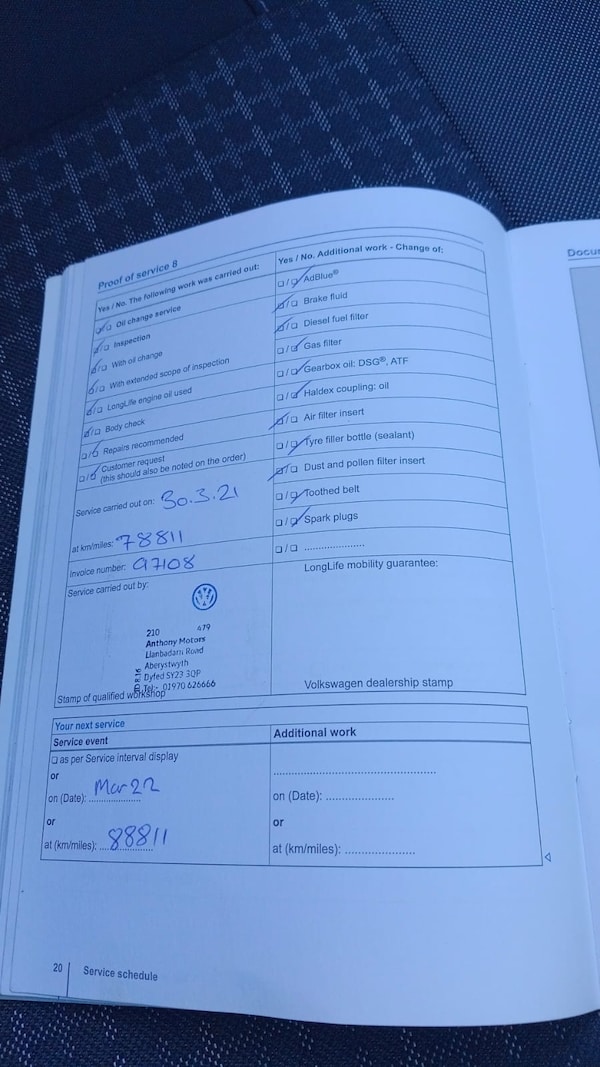 Proof of service 8
Yes / No. The following work was carried out:
Oil change service
Inspection
With oil change
With extended scope of inspection
LongLife engine oil used
Body check
Repairs recommended
Customer request
(this should also be noted on the order)
Service carried out on: 30.3.21
at km/miles: 78811
Invoice number: 97108
Service carried out by:
210 479
Anthony Motors
Llanbadarn Road
Aberystwyth
Dyfed SY23 3QP
Tel:- 01970 626666
Stamp of qualified workshop
Yes / No. Additional work - Change of:
AdBlue®
Brake fluid
Diesel fuel filter
Gas filter
Gearbox oil: DSG®, ATF
Haldex coupling: oil
Air filter insert
Tyre filler bottle (sealant)
Dust and pollen filter insert
Toothed belt
Spark plugs
....................
LongLife mobility guarantee:
Volkswagen dealership stamp
Your next service
Service event
as per Service interval display
or
on (Date): Mar 22
or
at (km/miles): 88811
Additional work
on (Date): ....................
or
at (km/miles): ....................
20 Service schedule
Docu